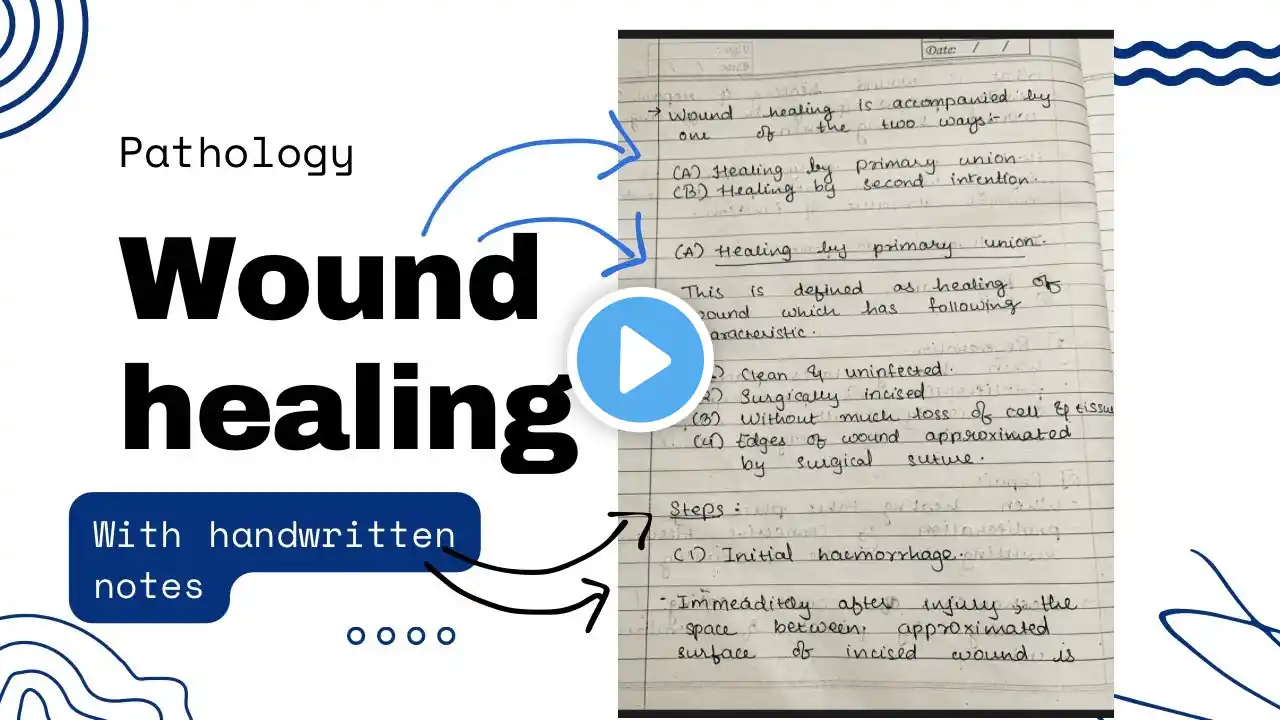 Pathology
Wound
healing
With handwritten
notes
Date: / /
→ Wound healing is accompanied by
one of the two ways:-
(A) Healing by primary union.
(B) Healing by second intention.
(A) Healing by primary union.
This is defined as healing of
ound which has following
aracteristic.
) Clean & uninfected.
2) Surgically incised
(3) Without much loss of cell & tissu
(4) Edges of wound approximated
by surgical suture.
Steps :
(1) Initial haemorrhage.
- Immeaditely after injury, the
space between approximated
surface of incised wound is